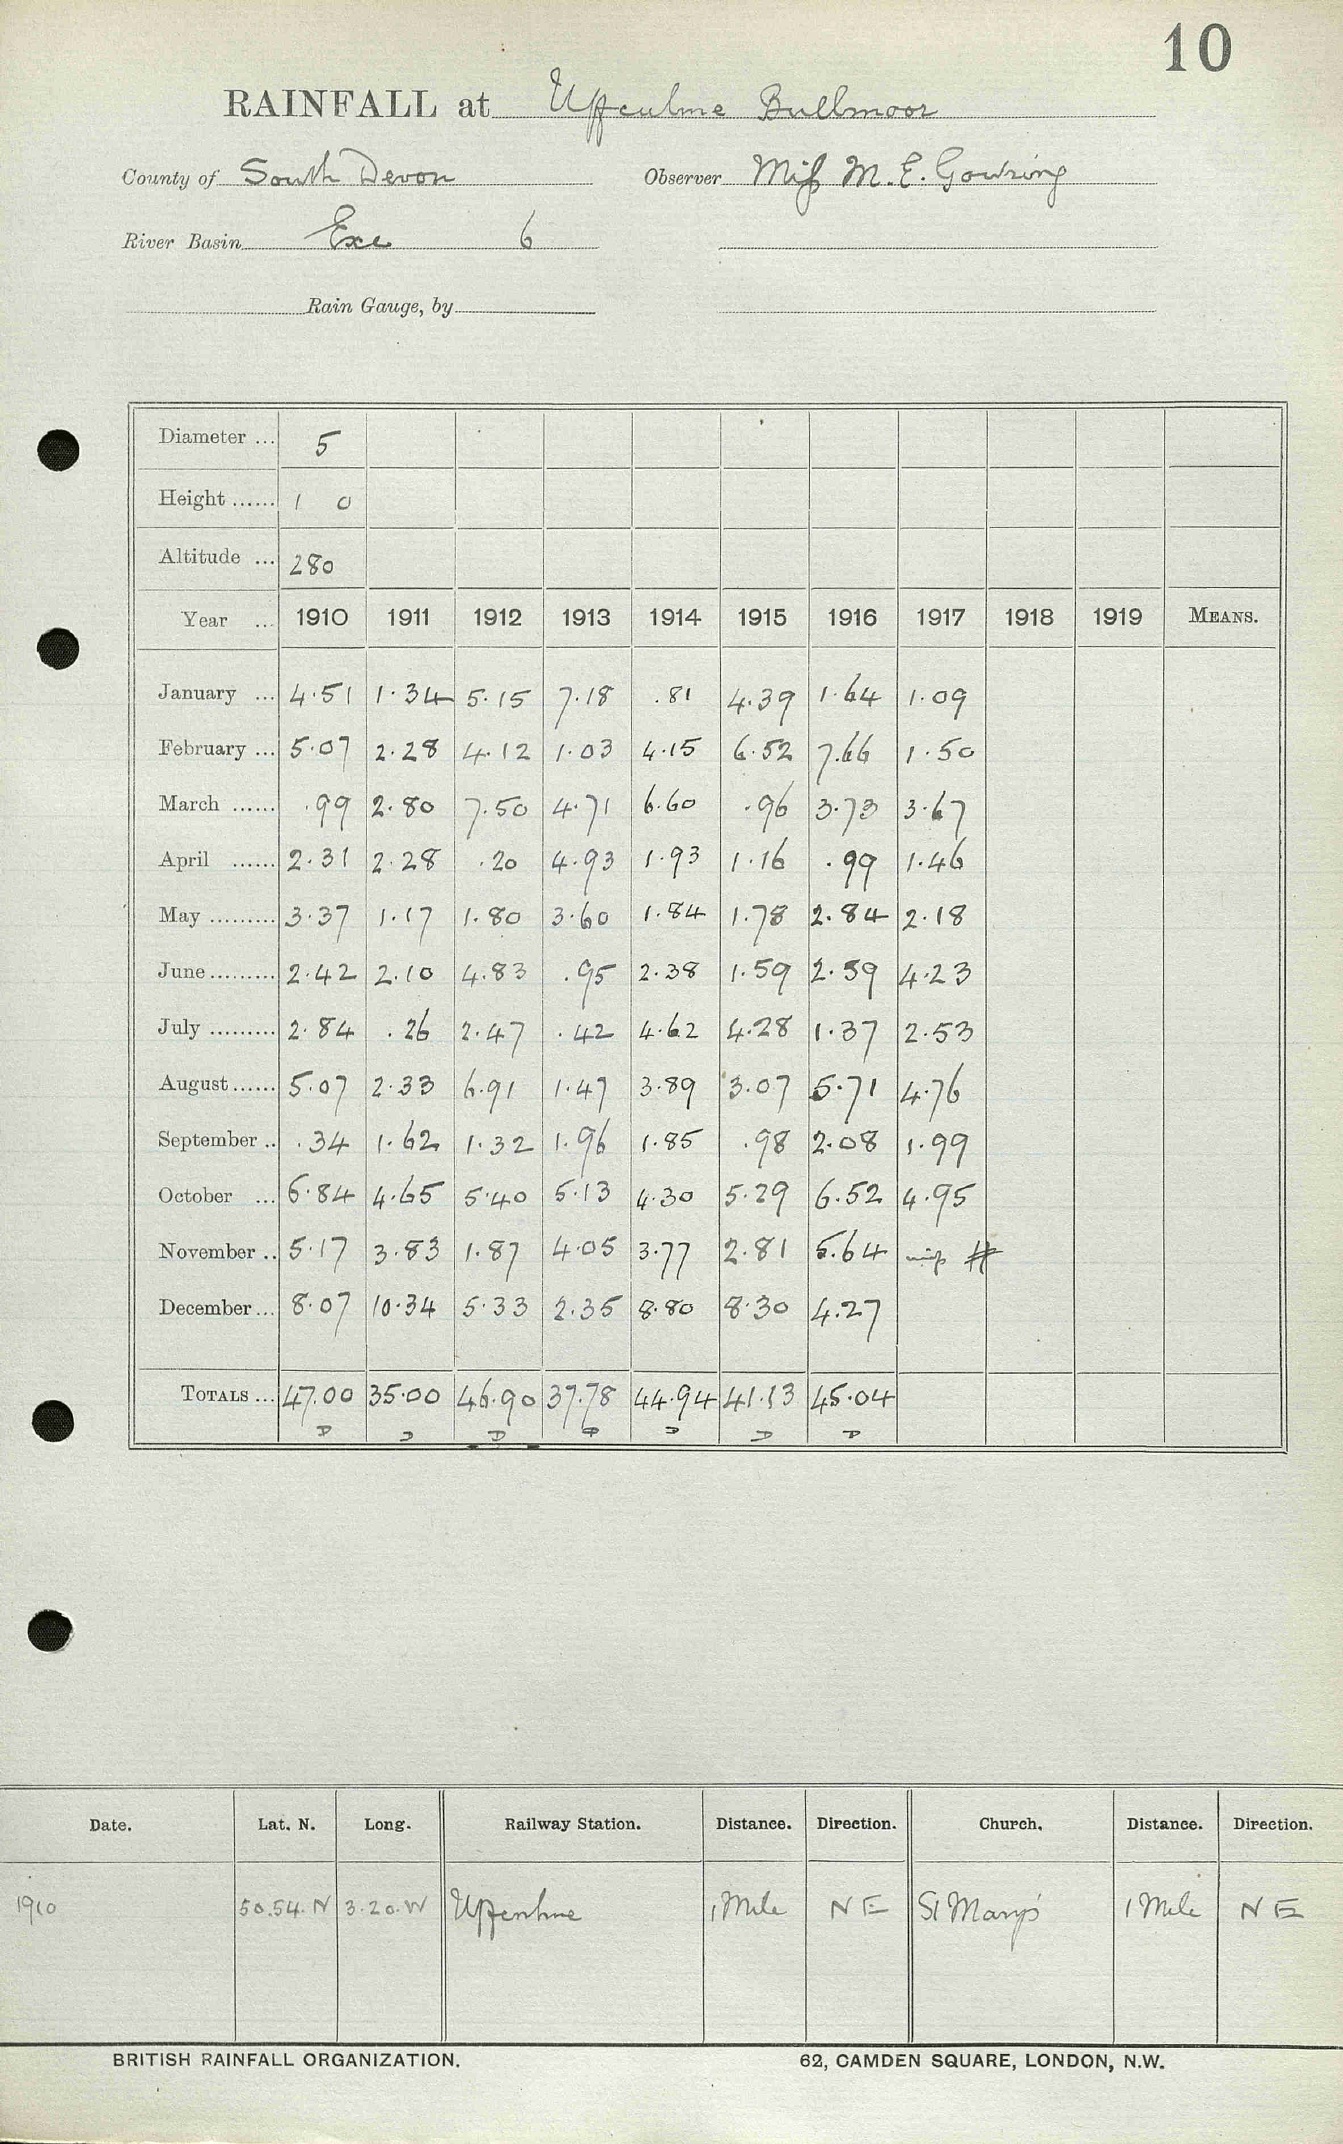 10
RAINFALL at Uffculme Bullmoor
County of South Devon Observer Miss M. E. Gowring
River Basin Exe 6
Rain Gauge, by
Diameter ... 5
Height ...... 1 0
Altitude ... 280
Year ... 1910 1911 1912 1913 1914 1915 1916 1917 1918 1919 MEANS.
January ... 4.51 1.34 5.15 7.18 .81 4.39 1.64 1.09
February ... 5.07 2.28 4.12 1.03 4.15 6.52 7.66 1.50
March ...... .99 2.80 7.50 4.71 6.60 .96 3.73 3.67
April ...... 2.31 2.28 .20 4.93 1.93 1.16 .99 1.46
May ......... 3.37 1.17 1.80 3.60 1.84 1.78 2.84 2.18
June ......... 2.42 2.10 4.83 .95 2.38 1.59 2.59 4.23
July ......... 2.84 .26 2.47 .42 4.62 4.28 1.37 2.53
August ...... 5.07 2.33 6.91 1.47 3.89 3.07 5.71 4.76
September .. .34 1.62 1.32 1.96 1.85 .98 2.08 1.99
October ... 6.84 4.65 5.40 5.13 4.30 5.29 6.52 4.95
November .. 5.17 3.83 1.87 4.05 3.77 2.81 5.64 #
December ... 8.07 10.34 5.33 2.35 8.80 8.30 4.27
TOTALS ... 47.00 35.00 46.90 37.78 44.94 41.13 45.04
D D D D D D D
Date. Lat. N. Long. Railway Station. Distance. Direction. Church. Distance. Direction.
1910 50.54.N 3.20.W Uffculme 1 Mile N E St Mary's 1 Mile N E
BRITISH RAINFALL ORGANIZATION. 62, CAMDEN SQUARE, LONDON, N.W.